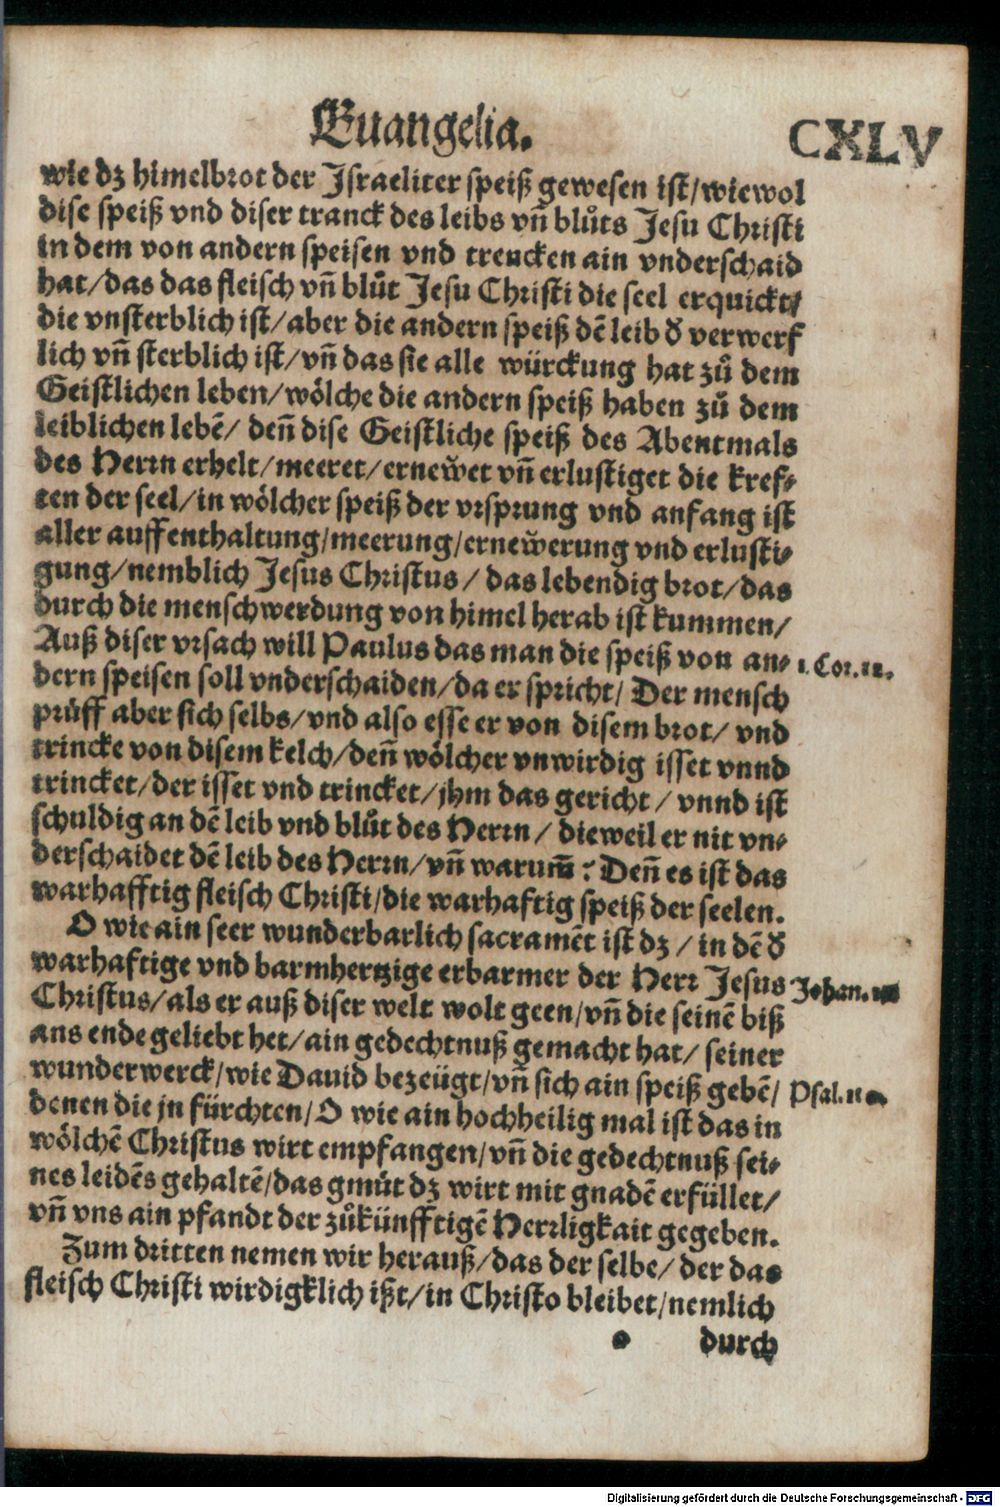 Euangelia. CXLV
wie dz himelbrot der Israeliter speiß gewesen ist/wiewol
dise speiß vnd diser tranck des leibs vñ blůts Jesu Christi
in dem von andern speisen vnd trencken ain vnderschaid
hat/das das fleisch vñ blůt Jesu Christi die seel erquickt/
die vnsterblich ist/aber die andern speiß dē leib d̄ verwerf
lich vñ sterblich ist/vñ das sie alle würckung hat zů dem
Geistlichen leben/wölche die andern speiß haben zů dem
leiblichen lebē/ deñ dise Geistliche speiß des Abentmals
des Herrn erhelt/meeret/ernewet vñ erlustiget die kref-
ten der seel/in wölcher speiß der vrsprung vnd anfang ist
aller auffenthaltung/meerung/ernewerung vnd erlusti-
gung/nemblich Jesus Christus/ das lebendig brot/das
durch die menschwerdung von himel herab ist kummen/
Auß diser vrsach will Paulus das man die speiß von an- 1. Cor. 11.
dern speisen soll vnderschaiden/da er spricht/ Der mensch
prüff aber sich selbs/vnd also esse er von disem brot/ vnd
trincke von disem kelch/deñ wölcher vnwirdig isset vnnd
trincket/der isset vnd trincket/jhm das gericht/ vnnd ist
schuldig an dē leib vnd blůt des Herrn/ dieweil er nit vn-
derschaidet dē leib des Herrn/vñ warum̄? Deñ es ist das
warhafftig fleisch Christi/die warhaftig speiß der seelen.
O wie ain seer wunderbarlich sacramēt ist dz/ in dē d̄
warhaftige vnd barmhertzige erbarmer der Herr Jesus Johan.
Christus/als er auß diser welt wolt geen/vñ die seinē biß
ans ende geliebt het/ain gedechtnuß gemacht hat/ seiner
wunderwerck/wie Dauid bezeügt/vñ sich ain speiß gebē/ Psal.
denen die jn fürchten/O wie ain hochheilig mal ist das in
wölchē Christus wirt empfangen/vñ die gedechtnuß sei-
nes leidēs gehaltē/das gmůt dz wirt mit gnadē erfüllet/
vñ vns ain pfandt der zůkünfftigē Herrligkait gegeben.
Zum dritten nemen wir herauß/das der selbe/ der das
fleisch Christi wirdigklich ißt/in Christo bleibet/nemlich
durch
Digitalisierung gefördert durch die Deutsche Forschungsgemeinschaft - DFG